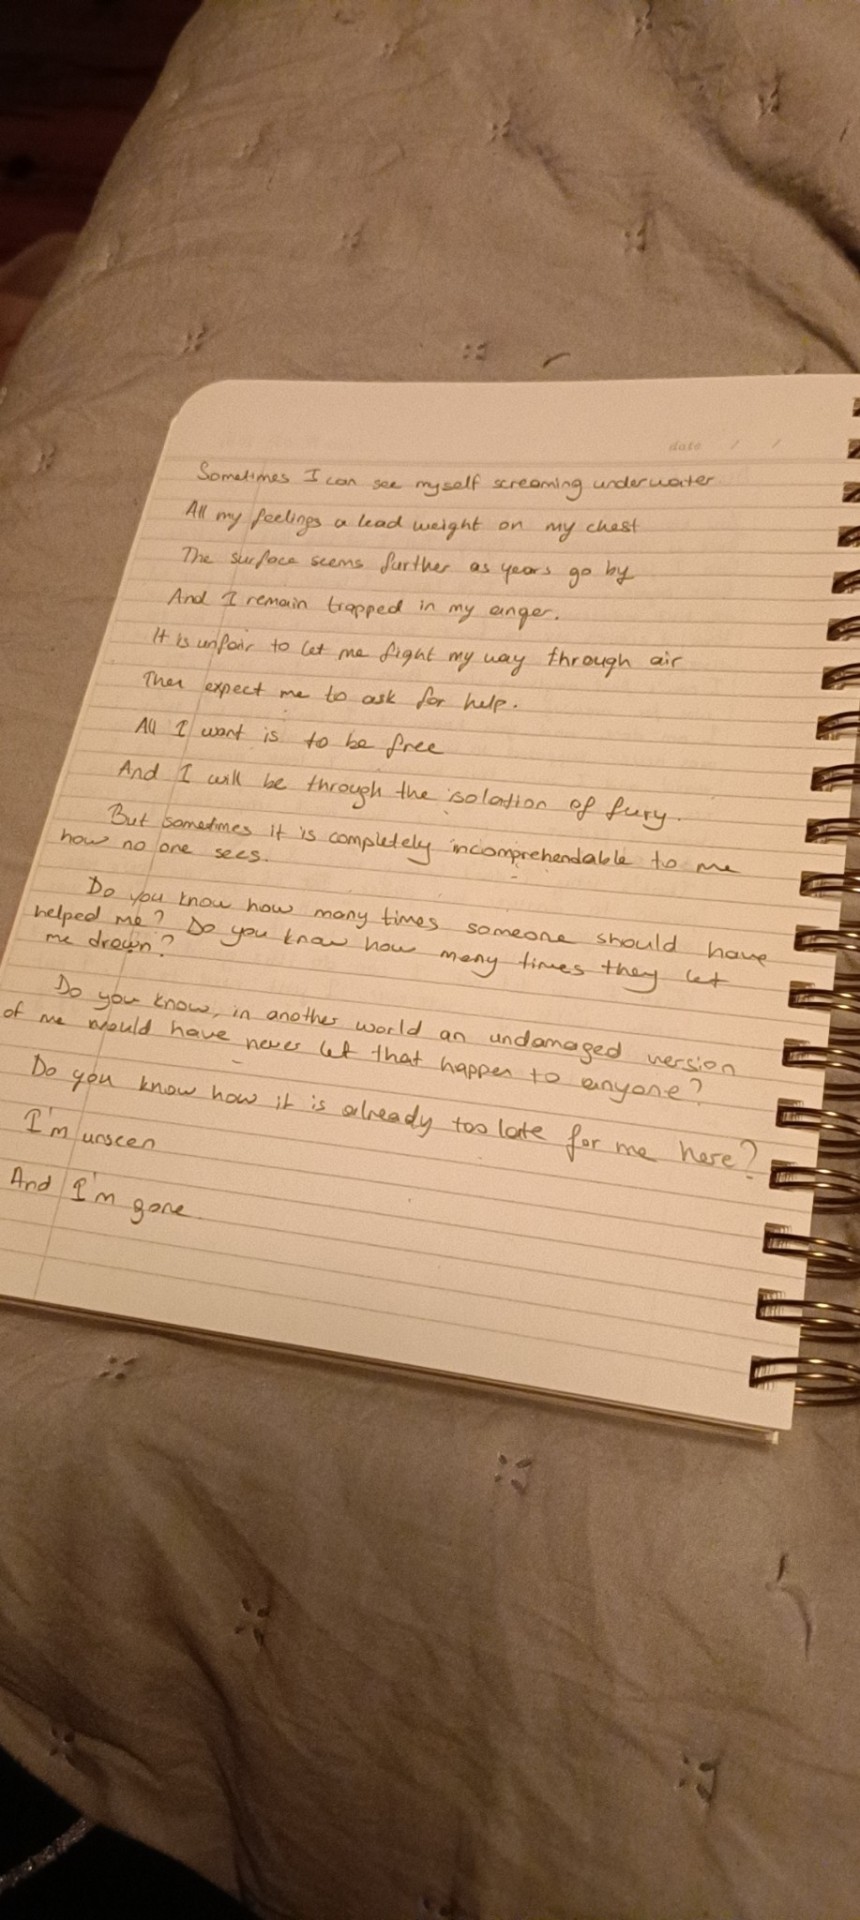 date / /
Sometimes I can see myself screaming underwater
All my feelings a lead weight on my chest
The surface seems further as years go by
And I remain trapped in my anger.
It is unfair to let me fight my way through air
Then expect me to ask for help.
All I want is to be free
And I will be through the isolation of fury.
But sometimes it is completely incomprehendable to me
how no one sees.
Do you know how many times someone should have
helped me? Do you know how many times they let
me drown?
Do you know, in another world an undamaged version
of me would have never let that happen to anyone?
Do you know how it is already too late for me here?
I'm unseen
And I'm gone.